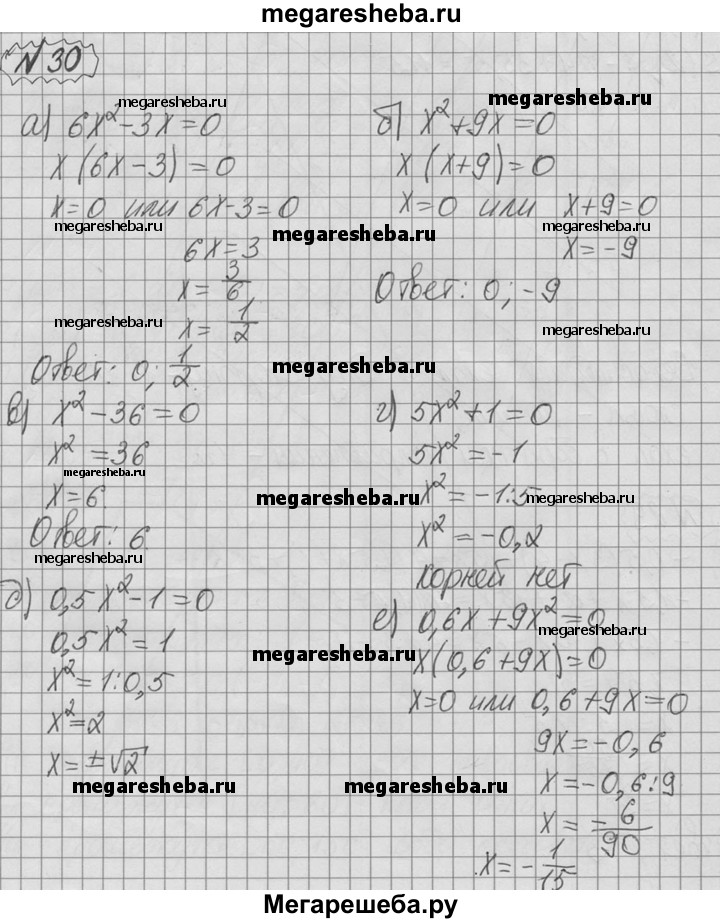 megaresheba.ru
№ 30
megaresheba.ru
megaresheba.ru
а) 6x² - 3x = 0
x (6x - 3) = 0
x = 0 или 6x - 3 = 0
megaresheba.ru
megaresheba.ru
6x = 3
x = 3/6
megaresheba.ru
x = 1/2
Ответ: 0; 1/2.
megaresheba.ru
б) x² + 9x = 0
x (x + 9) = 0
x = 0 или x + 9 = 0
megaresheba.ru
x = -9
Ответ: 0; -9
megaresheba.ru
в) x² - 36 = 0
x² = 36
megaresheba.ru
x = 6
megaresheba.ru
Ответ: 6.
megaresheba.ru
г) 5x² + 1 = 0
5x² = -1
x² = -1:5
megaresheba.ru
x² = -0,2
корней нет
д) 0,5x² - 1 = 0
0,5x² = 1
megaresheba.ru
x² = 1:0,5
x² = 2
x = ±√2
megaresheba.ru
е) 0,6x + 9x² = 0
megaresheba.ru
x(0,6 + 9x) = 0
x = 0 или 0,6 + 9x = 0
9x = -0,6
x = -0,6:9
megaresheba.ru
x = -6/90
x = -1/15
Мегарешеба.ру